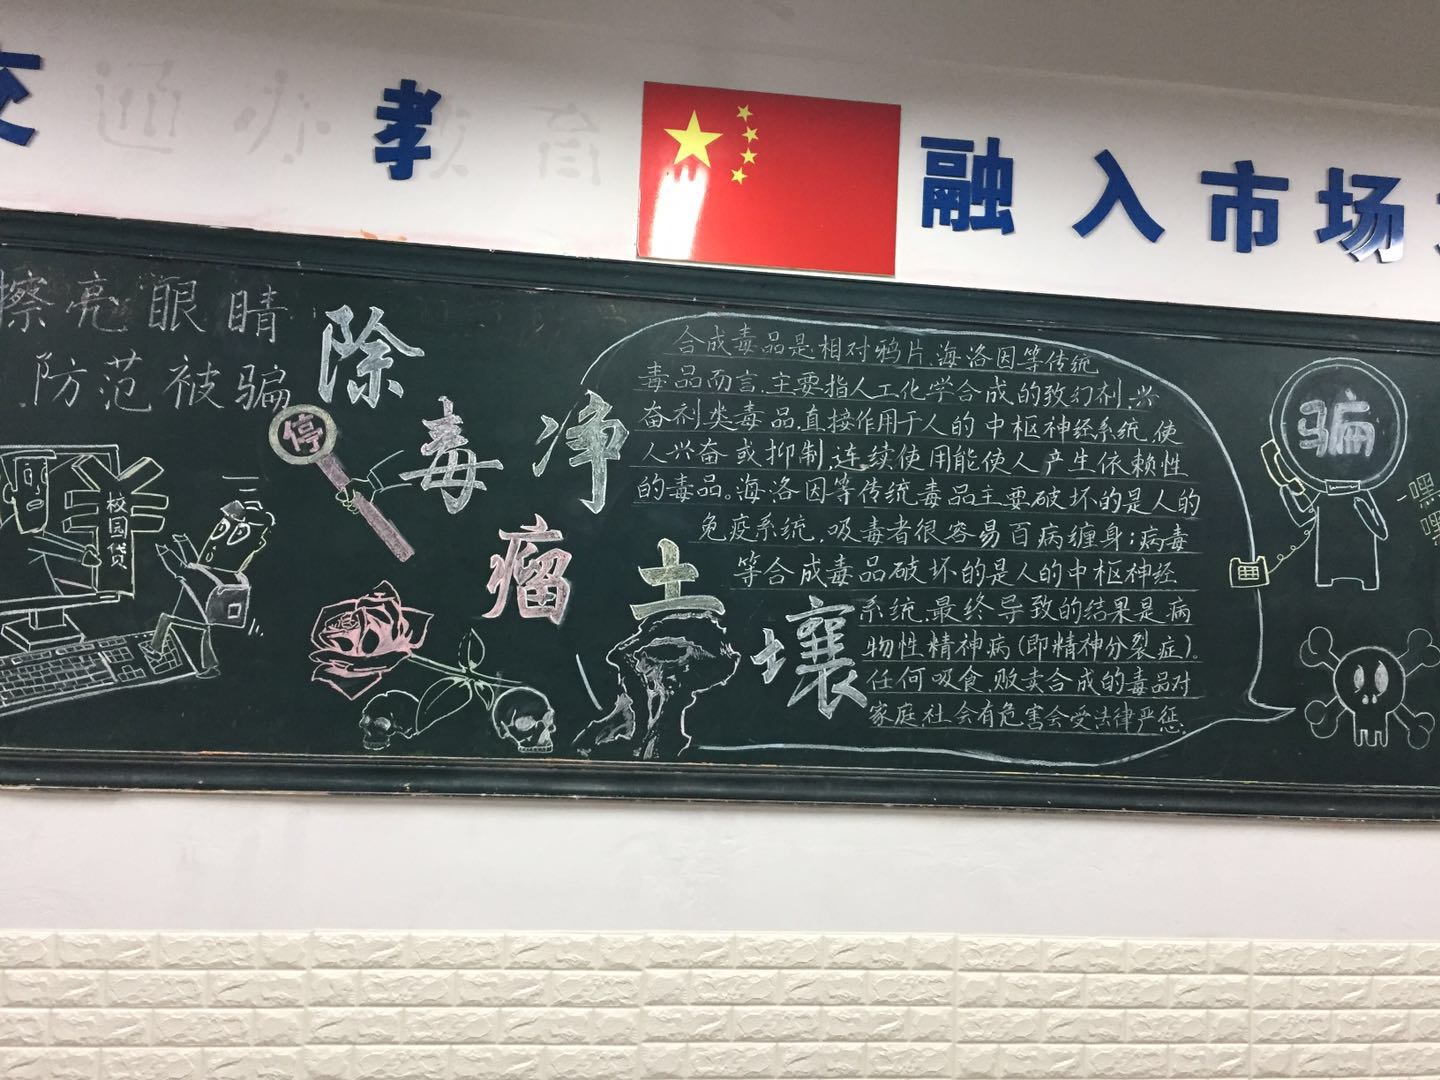 交 教 融入市场
通办教育
擦亮眼睛
防范被骗
除毒瘤
净土壤
停
校园贷
合成毒品是相对鸦片、海洛因等传统
毒品而言,主要指人工化学合成的致幻剂、兴
奋剂类毒品,直接作用于人的中枢神经系统,使
人兴奋或抑制,连续使用能使人产生依赖性
的毒品。海洛因等传统毒品主要破坏的是人的
免疫系统,吸毒者很容易百病缠身;病毒
等合成毒品破坏的是人的中枢神经
系统,最终导致的结果是病
物性精神病(即精神分裂症)。
任何吸食、贩卖合成的毒品对
家庭社会有危害会受法律严惩.
骗
嘿
嘿